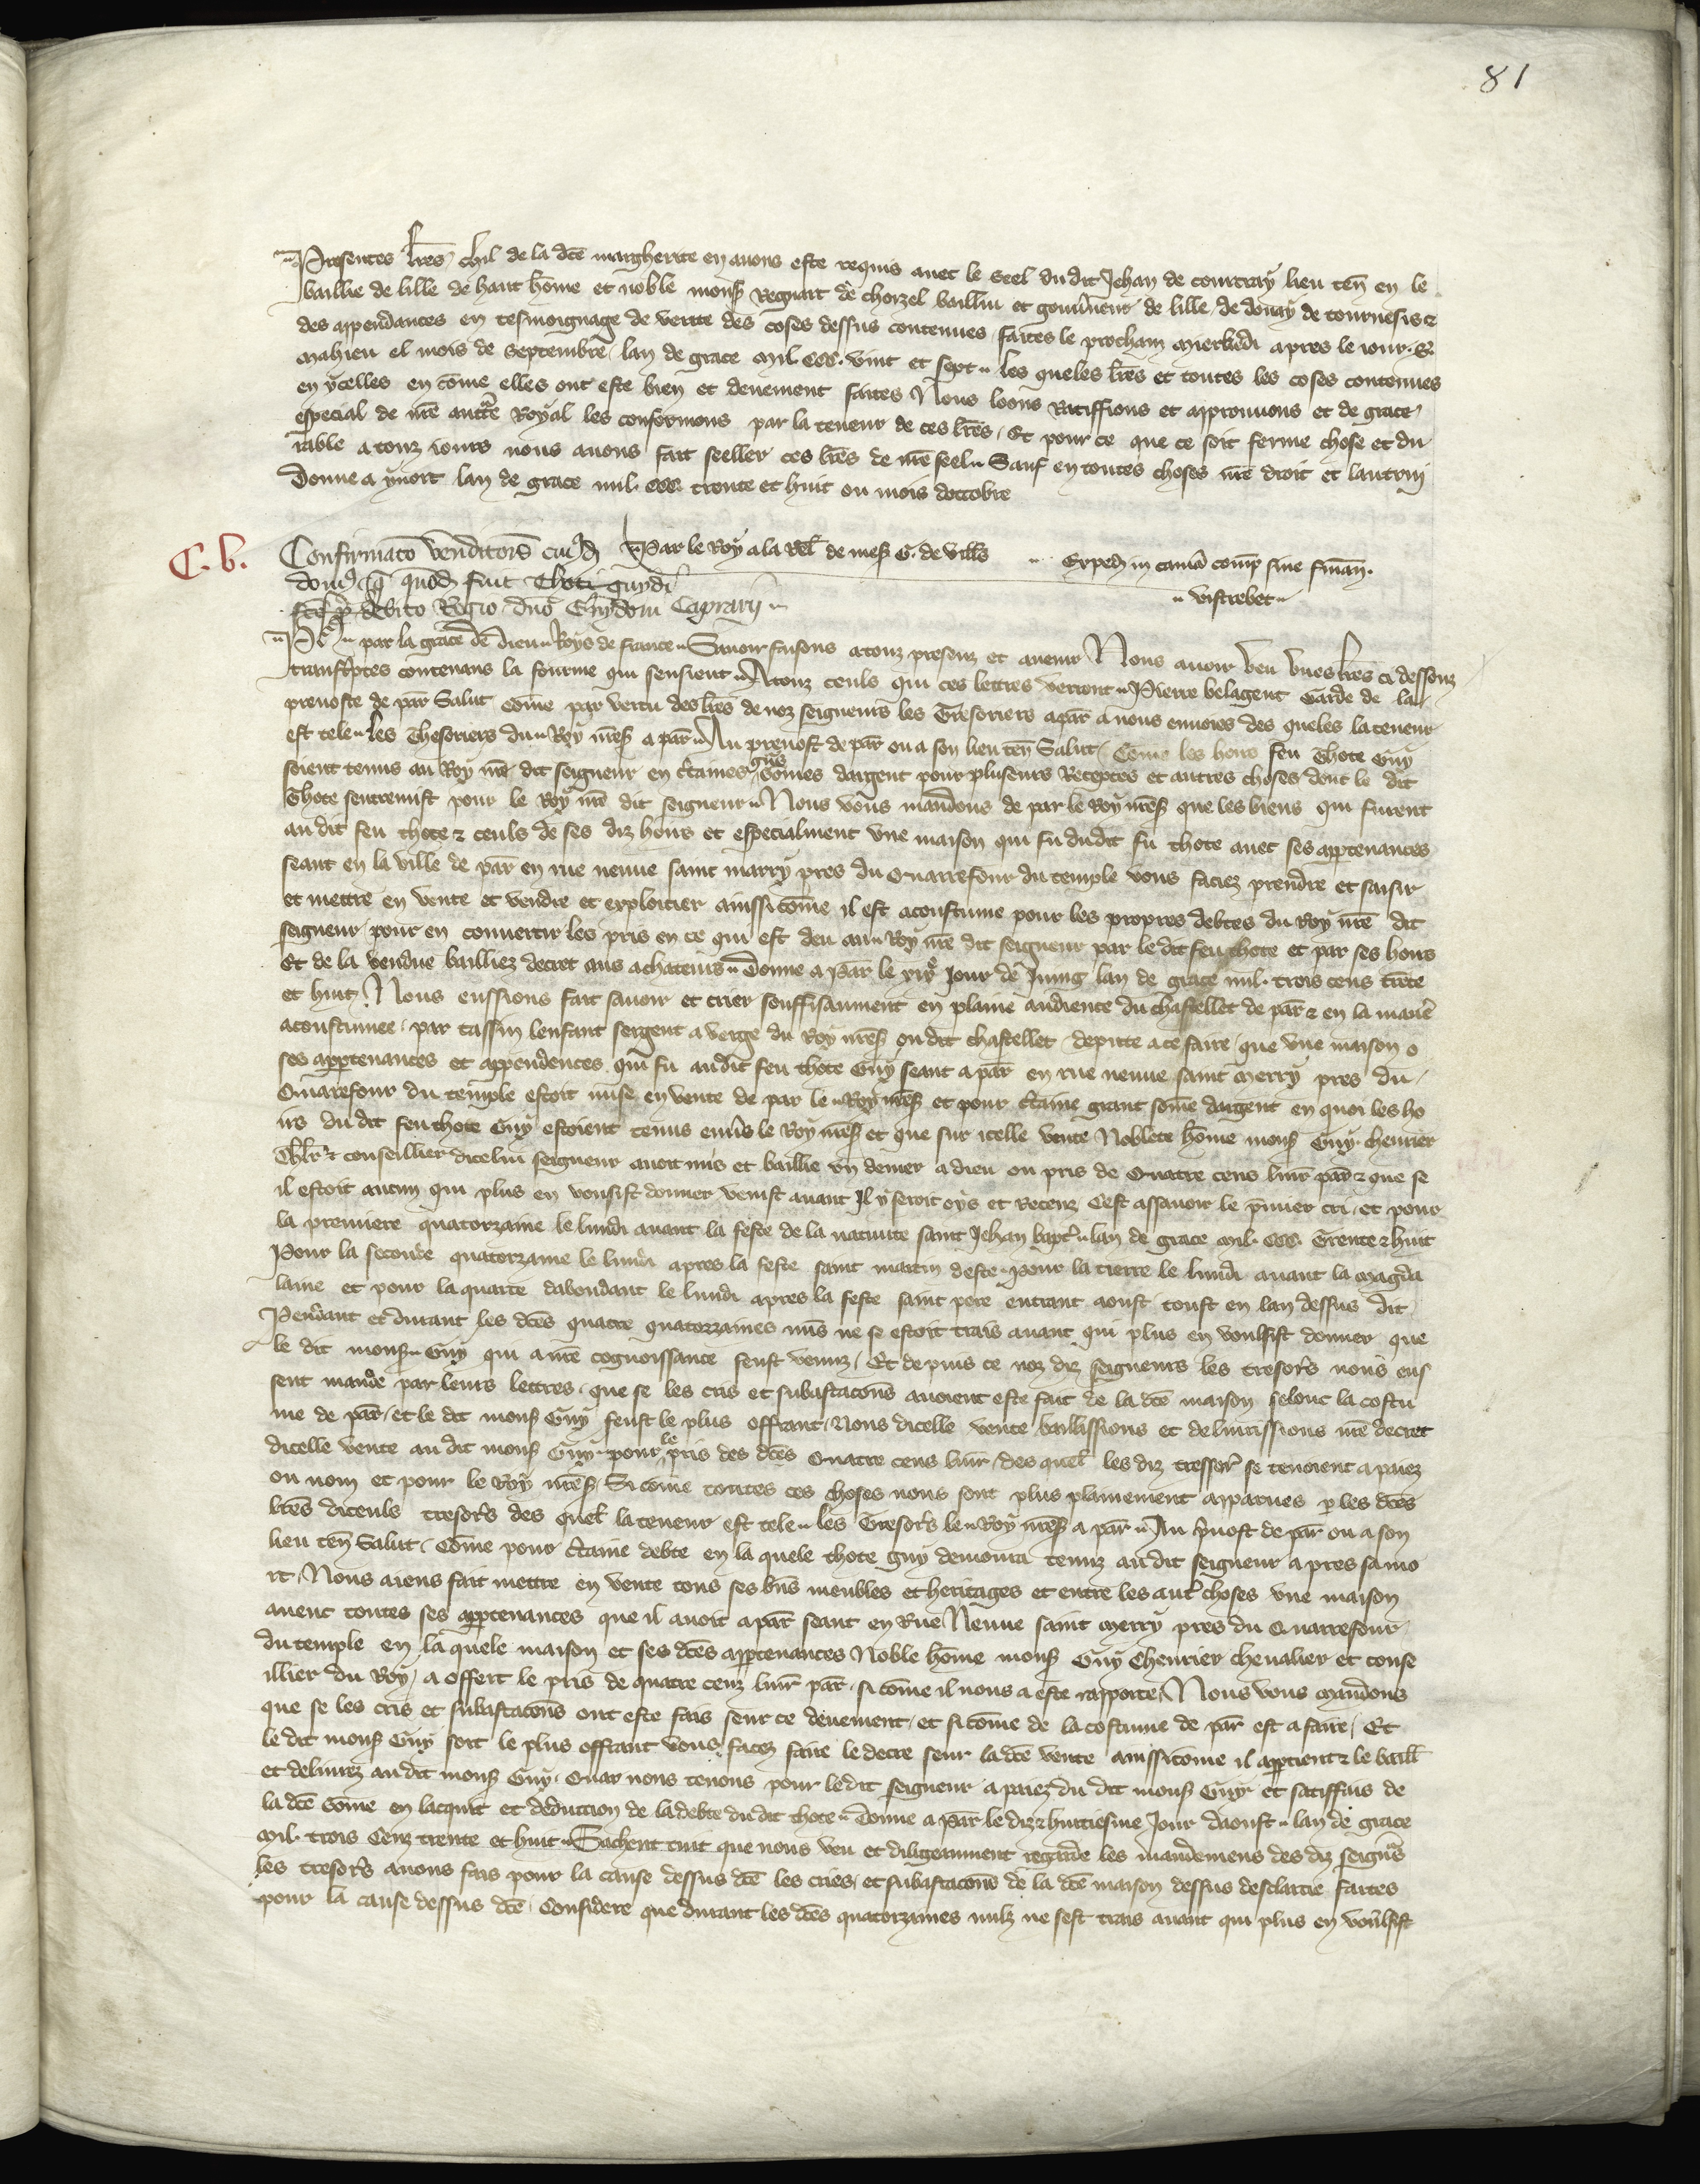 81
Presentes lrẽs chil de la dcẽ margherite en auons este requis auec le Seel du dit Jehan de courtray lieu teñ en le
baillie de lille de haut hõme et noble mons̃ Regnart de choizel bailliu et gouũneur de lille de douay de tournesis ⁊
des appendances en tesmoignage de verite des coses dessus contenues faites le prochain Mierkedi apres le iour .S.
Mahieu el mois de Septembre lan de grace mil. CCC. vint et sept .. les queles lrẽs et toutes les coses contenues
en ycelles en cõme elles ont este bien et deuement faites Nous loons Ratiffions et approuuons et de grace
especial de nr̃e auctẽ Royal les confermons par la teneur de ces lrẽs / Et pour ce que ce soit ferme chose et du
rable a touz iours nous auons fait seeller ces lrẽs de nr̃e seel .. Sauf en toutes choses nr̃e droit et lautruj
Donne a lan de grace mil. CCC. trente et huit ou mois doctobre
C.b.
Confirmaco venditois cuiꝰd Par le Roy a la Rel̃ de mess̃ G. de vill̃s .. Exped in camã comp̃ sine finañ.
domꝰ q quond fuit Thoti guydi
.. vistrebec ..
fc̃e p debito Regio dño Guidoni Caprarij ..
Ph̃ .. par la grace de dieu .. Roys de france .. Sauoir faisons a touz presenz et auenir Nous auoir veu vnes lrẽs ci dessouz
transcptes contenans la fourme qui sensieut .. A touz ceuls qui ces lettres verront .. Pierre belagent Garde de la
preuoste de par̃ Salut cõme par vertu des lrẽs de noz seigneurs les Tresoriers a par̃ a nous enuoies des queles la teneur
est tele .. Les Thesoriers du .. Roy nr̃es̃ a par̃ .. Au preuost de par̃ ou a son lieu teñ Salut / Cõme les hoirs feu Thote Guy
soient tenus au Roy nr̃e dit seigneur en c̃taines gñs sõmes dargent pour pluseurs Receptes et autres choses dont le dit
Thote sentremist pour le Roy nr̃e dit seigneur .. Nous vous mandons de par le Roy nr̃es̃ que les biens qui furent
au dit feu thote ⁊ ceuls de ses diz hoirs et especialment vne maison qui fu dudit fu thote auec ses apptenances
seant en la ville de par̃ en rue neuue saint marry pres du Quarrefour du temple vous faciez prendre et saisir
et mettre en vente et vendre et exploitier ainssi cõme il est acoustume pour les propres debtes du Roy nr̃e dit
seigneur / pour en conuertir les pris en ce qui est deu au .. Roy nr̃e dit seigneur par le dit feu thote et par ses hoirs
Et de la vendue bailliez decret aus achateurs .. Donne a Par̃ le xix.ᵉ Jour de Juing lan de grace mil. trois cens trẽte
et huit / Nous eussions fait sauoir et crier souffisaument en plaine audience du chastellet de par̃ ⁊ en la manẽ
acoustumee / par tassin lenfant sergent a verge du Roy nr̃es̃ ou dit chastellet depute a ce faire / que vne maison o
ses apptenances et appendences qui fu au dit feu thote Guy seant a par̃ en rue neuue saint Merry pres du
Quarefour du temple estoit mise en vente de par le .. Roy nr̃es̃ et pour c̃taine grant sõme dargent en quoi les ho
irs du dit feu thote Guy estoient tenus enũs le Roy nr̃es̃ et que sur icelle vente Noblete hõme mons̃ Guy cheurier
Chlr̃ ⁊ conseillier dicelui seigneur auoit mis et baillie vn denier a dieu ou pris de Quatre cens liur̃ par̃ ⁊ que se
il estoit aucun qui plus en vousist donner venist auant Il y seroit oys et Recenz Cest assauoir le p̃mier cri / et pour
la premiere quatorzaine le lundi auant la feste de la natiuite saint Jehan bapt̃ .. lan de grace Mil. CCC. Trente ⁊ huit
Pour la seconde quatorzaine le lundi apres la feste saint martin deste .. pour la tierce le lundi auant la Magda
laine et pour la quarte dabondant le lundi apres la feste saint pere entrant aoust toust en lan dessus dit
Pendant et durant les dcẽs quatre quatorzaines nuls ne se estoit trais auant qui plus en voulsist donner que
le dit mons̃ .. Guy qui a nr̃e cognoissance feust venuz / Et de puis ce noz diz seigneurs les tresor̃s nous eus
sent mande par leurs lettres / que se les cris et subastacoñs auoient este fait de la dcẽ maison selonc la costu
me de par̃ / et le dit mons̃ Guy feust le plus offrant / Nous dicelle vente baillissions et deliurissions nr̃e decret
dicelle vente au dit mons̃ Guy .. pour le pris des dcẽs Quatre cens liur̃ / des quel̃ les diz tressor̃ se tenoient a paiez
ou nom et pour le Roy nr̃es̃ / Si cõme toutes ces choses nous sont plus plainement apparues p les dcẽs
lrẽs diceuls tresor̃s des quel̃ la teneur est tele .. les Tresor̃s le .. Roy nr̃es̃ a par̃ .. Au p̃uost de par̃ ou a son
lieu teñ Salut / Cõme pour c̃taine debte en la quele thote guy demoura tenuz au dit seigneur apres sa mo
rt / Nous aiens fait mettre en vente tous ses bñs meubles et heritages et entre les aut̃ choses vne maison
auent toutes ses apptenances que il auoit a par̃ seant en Rue Neuue saint Merry pres du Quarrefour
du temple en la quele maison et ses dcẽs apptenances Noble hõme mons̃ Guy Cheurier cheualier et conse
illier du Roy / a offert le pris de quatre cenz liur̃ par̃ / si cõme il nous a este rapporte / Nous vous Mandons
que se les cris et subastacoñs ont este fais seur ce deuement / et si cõme de la costume de par̃ est a faire / Et
le dit mons̃ Guy soit le plus offrant vous facez faire le decre seur la dcẽ vente ainssi cõme il apptient ⁊ le baill̃
et deliurez au dit mons̃ Guy / Quar nous tenons pour le dit seigneur a paiez du dit mons̃ Guy et satiffais de
la dcẽ sõme en lacquit et deduccion de la debte du dit thote .. Donne a Par̃ le diz ⁊ huittiesme Jour daoust .. lan de grace
Mil. trois Cenz trente et huit .. Sachent tuit que nous veu et diligeaument regarde les mandemens des diz seigñrs
les tresor̃s auons fais pour la cause dessus dcẽ les cries / et subastacoñs de la dcẽ maison dessus desclarcie faites
pour la cause dessus dcẽ / Considere que durant les dcẽs quatorzaines nulz ne sest trais auant qui plus en voulsist